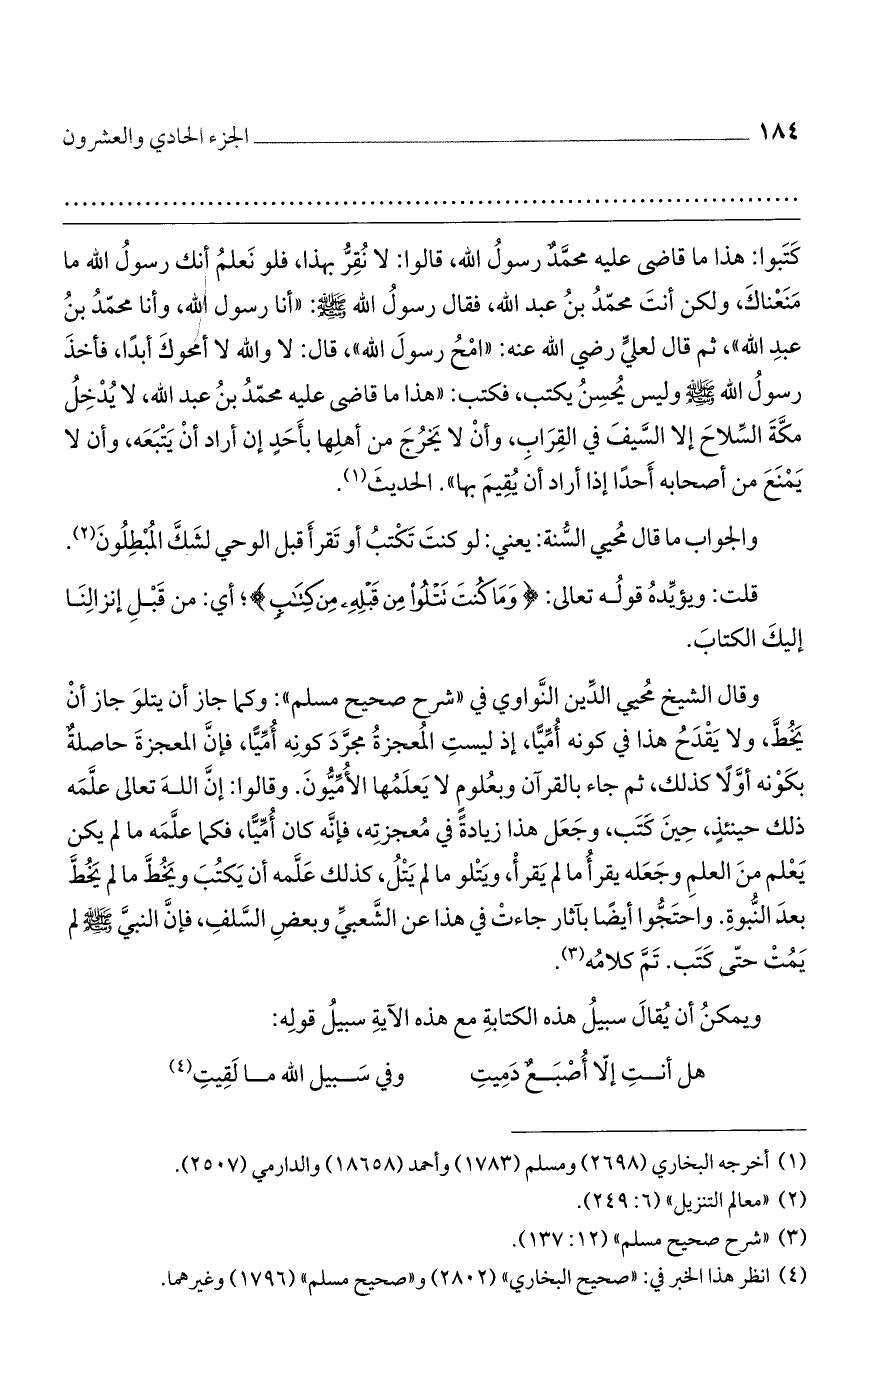 ١٨٤ ــــــــــــــــــــ الجزء الحادي والعشرون
................................................................................
كَتَبوا: هذا ما قاضى عليه محمَّدٌ رسولُ الله، قالوا: لا نُقِرُّ بهذا، فلو نَعلمُ أنك رسولُ الله ما
مَنَعْناكَ، ولكن أنتَ محمّدُ بنُ عبد الله، فقال رسولُ الله ﷺ: «أنا رسول الله، وأنا محمّدُ بنُ
عبدِ الله»، ثم قال لعليٍّ رضي الله عنه: «امْحُ رسولَ الله»، قال: لا والله لا أمحوكَ أبدًا، فأخذَ
رسولُ الله ﷺ وليس يُحسِنُ يكتب، فكتب: «هذا ما قاضى عليه محمّدُ بنُ عبد الله، لا يُدْخِلُ
مكَّةَ السِّلاحَ إلا السَّيفَ في القِرَابِ، وأنْ لا يَخْرُجَ من أهلِها بأَحَدٍ إن أراد أنْ يَتْبَعَه، وأن لا
يَمْنَعَ من أصحابه أَحدًا إذا أراد أن يُقِيمَ بها». الحديثَ(١).
والجواب ما قال مُحيي السُّنة: يعني: لو كنتَ تَكْتبُ أو تَقرأَ قبل الوحي لشَكَّ المُبْطِلُونَ(٢).
قلت: ويؤيِّدهُ قولُه تعالى: ﴿وَمَا كُنتَ تَتْلُوا۟ مِن قَبْلِهِۦ مِن كِتَٰبٍ﴾؛ أي: من قَبْلِ إنزالِنَا
إليكَ الكتابَ.
وقال الشيخ مُحيي الدِّين النَّواوي في «شرح صحيح مسلم»: وكما جاز أن يتلوَ جاز أنْ
يَخُطَّ، ولا يَقْدَحُ هذا في كونه أُمِّيًّا، إذ ليستِ المُعجزةُ مجرَّدَ كونِه أُمِّيًّا، فإنَّ المعجزةَ حاصلةٌ
بكَوْنه أوَّلًا كذلك، ثم جاء بالقرآن وبعُلومٍ لا يَعلَمُها الأُمِّيُّونَ. وقالوا: إنَّ اللهَ تعالى علَّمَه
ذلك حينئذٍ، حِينَ كَتَب، وجَعَل هذا زيادةً في مُعجزتِه، فإنَّه كان أُمِّيًّا، فكما علَّمَه ما لم يكن
يَعْلم منَ العلمِ وجَعَله يقرأُ ما لم يَقرأْ، ويَتْلو ما لم يَتْلُ، كذلك عَلَّمه أن يَكتُبَ ويَخُطَّ ما لم يَخُطَّ
بعدَ النُّبوةِ. واحتَجُّوا أيضًا بآثار جاءتْ في هذا عن الشَّعبيِّ وبعضِ السَّلفِ، فإنَّ النبيَّ ﷺ لم
يَمُتْ حتّى كَتَب. تَمَّ كلامُه(٣).
ويمكنُ أن يُقالَ سبيلُ هذه الكتابةِ مع هذه الآيةِ سبيلُ قولِه:
هل أنتِ إلّا أُصْبَعٌ دَمِيتِ    وفي سَبيل الله ما لَقِيتِ(٤)
(١) أخرجه البخاري (٢٦٩٨) ومسلم (١٧٨٣) وأحمد (١٨٦٥٨) والدارمي (٢٥٠٧).
(٢) «معالم التنزيل» (٦: ٢٤٩).
(٣) «شرح صحيح مسلم» (١٢: ١٣٧).
(٤) انظر هذا الخبر في: «صحيح البخاري» (٢٨٠٢) و«صحيح مسلم» (١٧٩٦) وغيرهما.